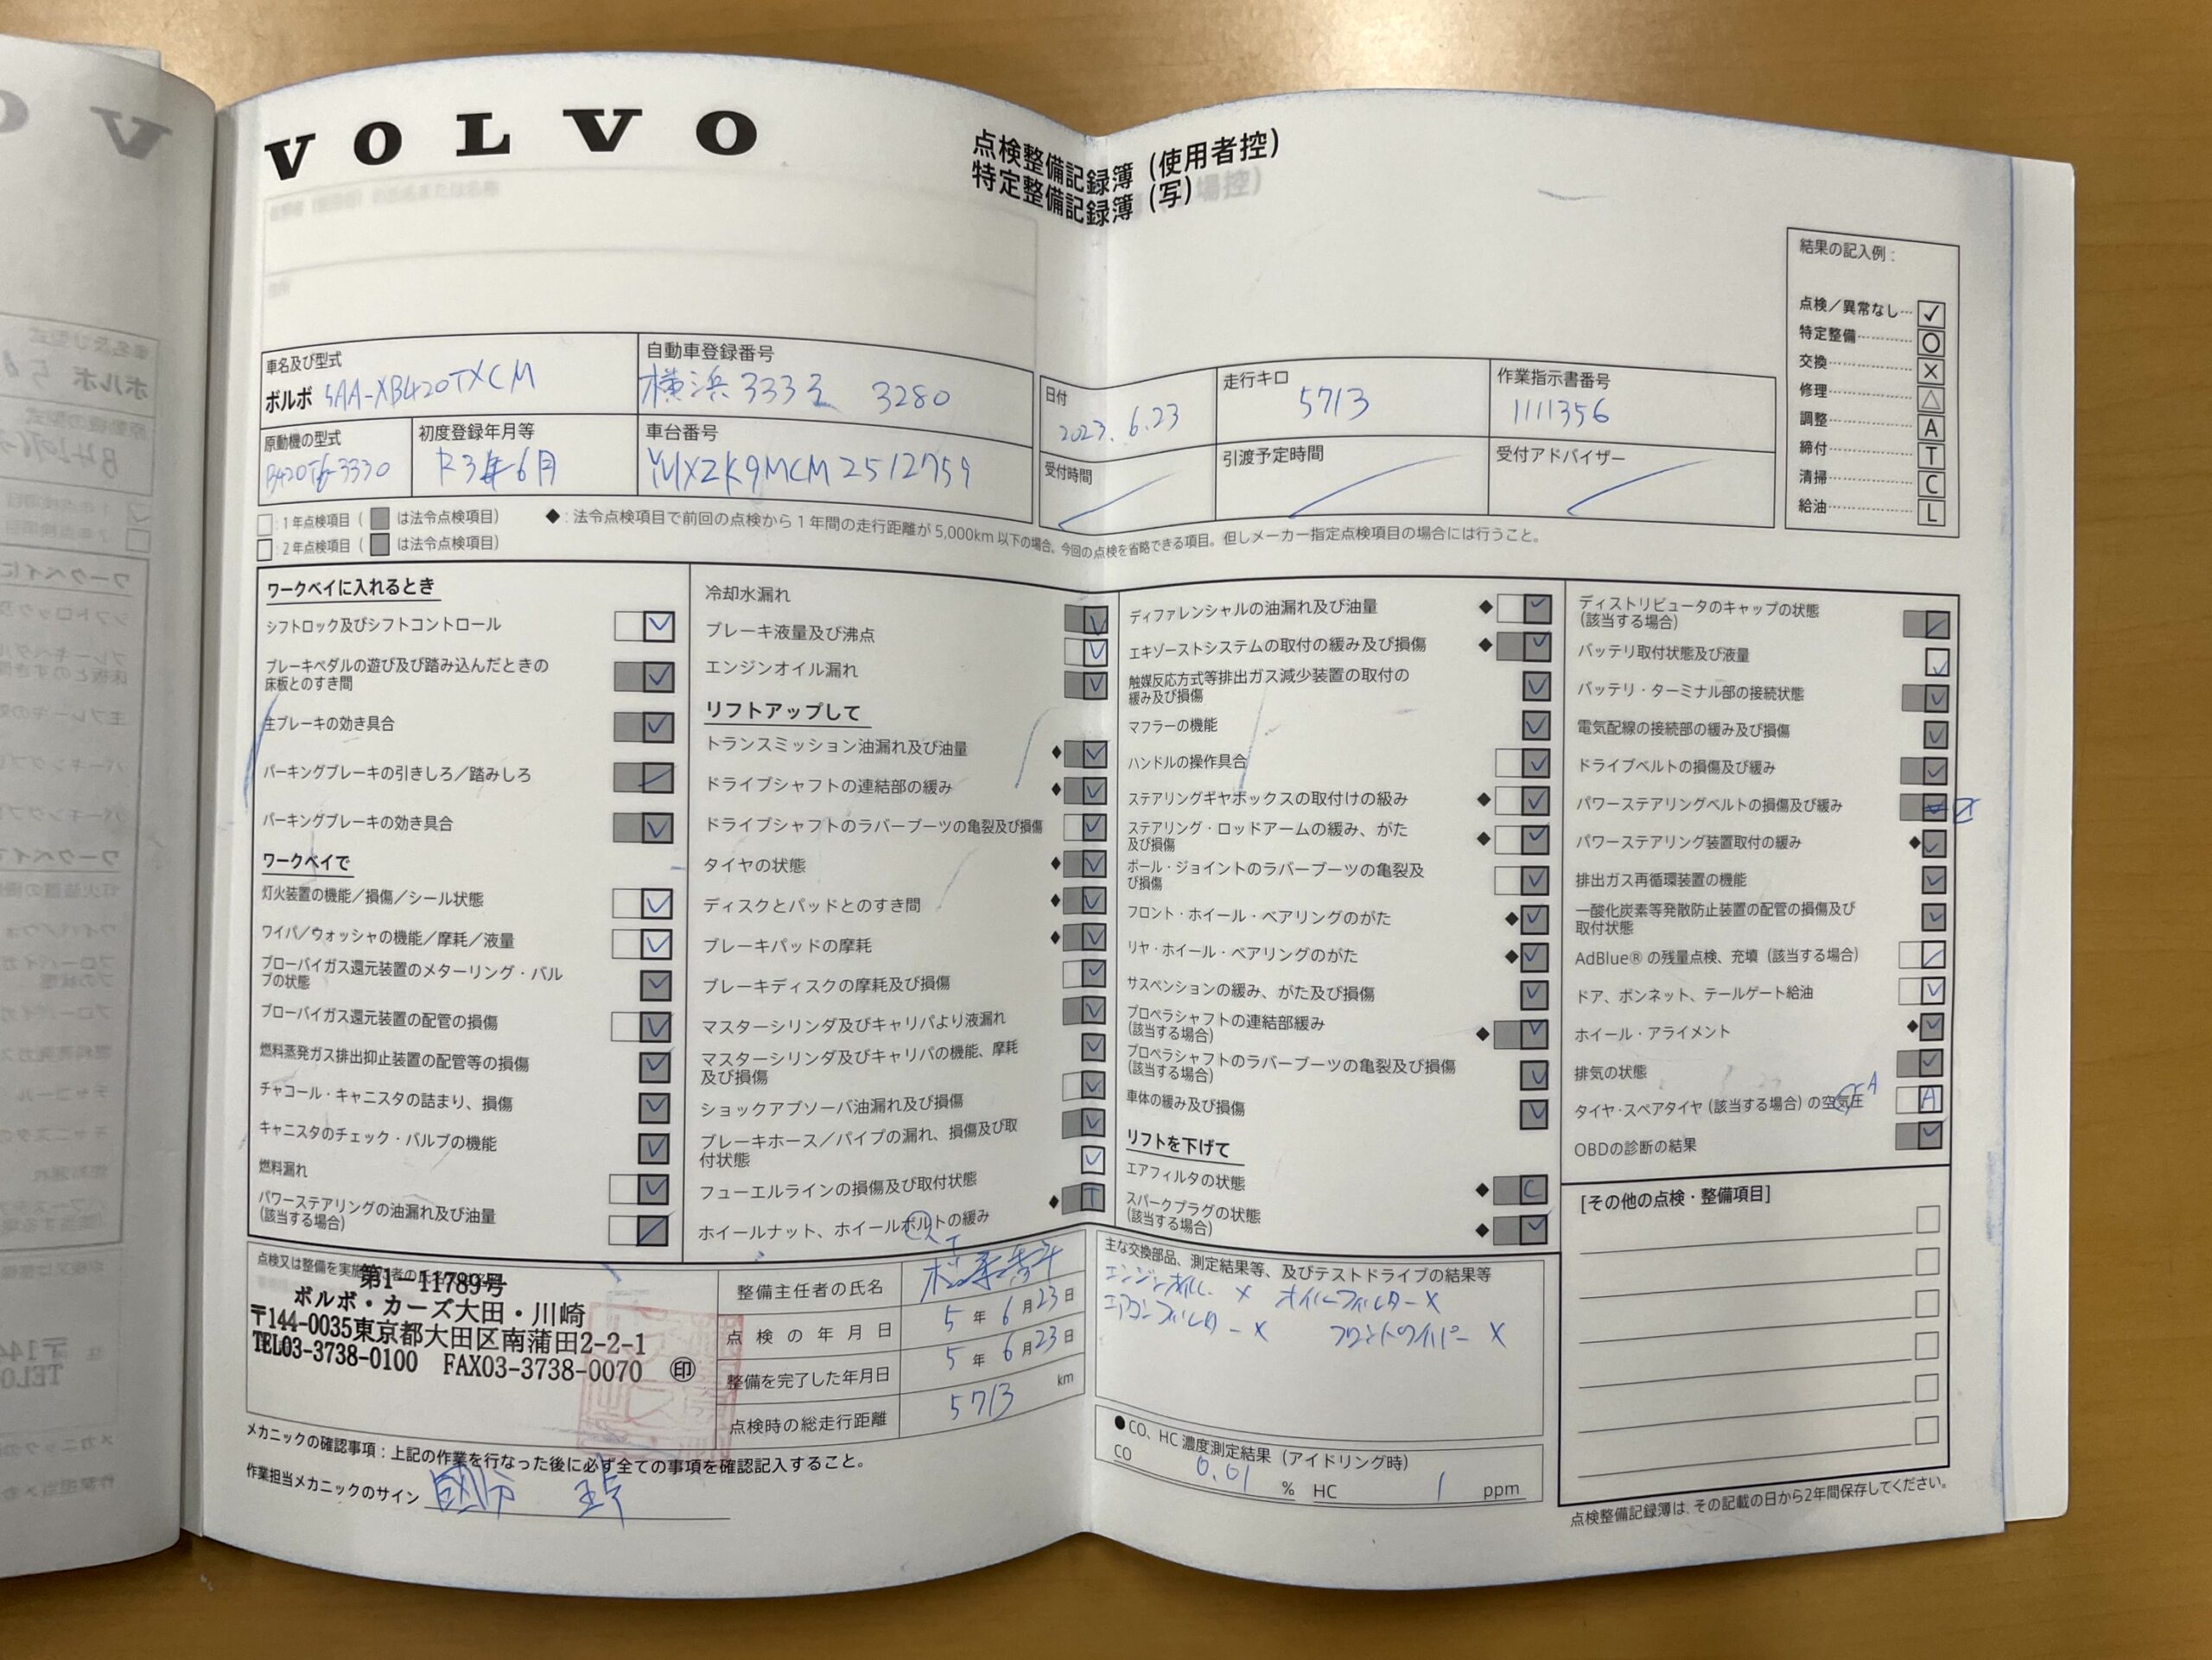 VOLVO
点検整備記録簿（使用者控）
特定整備記録簿（写）
結果の記入例：
点検／異常なし… ✓
特定整備… O
交換… X
修理… △
調整… A
締付… T
清掃… C
給油… L
車名及び型式
ボルボ 5AA-XB420TXCM
自動車登録番号
横浜 333 3280
原動機の型式
初度登録年月等
R3年6月
車台番号
日付
2023.6.23
走行キロ
5713
作業指示書番号
1111356
受付時間
引渡予定時間
受付アドバイザー
□：1年点検項目（■は法令点検項目）
□：2年点検項目（■は法令点検項目）
◆：法令点検項目で前回の点検から1年間の走行距離が5,000km以下の場合、今回の点検を省略できる項目。但しメーカー指定点検項目の場合には行うこと。
ワークベイに入れるとき
シフトロック及びシフトコントロール
ブレーキペダルの遊び及び踏み込んだときの
床板とのすき間
主ブレーキの効き具合
パーキングブレーキの引きしろ／踏みしろ
パーキングブレーキの効き具合
ワークベイで
灯火装置の機能／損傷／シール状態
ワイパ／ウォッシャの機能／摩耗／液量
ブローバイガス還元装置のメターリング・バル
ブの状態
ブローバイガス還元装置の配管の損傷
燃料蒸発ガス排出抑止装置の配管等の損傷
チャコール・キャニスタの詰まり、損傷
キャニスタのチェック・バルブの機能
燃料漏れ
パワーステアリングの油漏れ及び油量
(該当する場合)
冷却水漏れ
ブレーキ液量及び沸点
エンジンオイル漏れ
リフトアップして
トランスミッション油漏れ及び油量
ドライブシャフトの連結部の緩み
ドライブシャフトのラバーブーツの亀裂及び損傷
タイヤの状態
ディスクとパッドとのすき間
ブレーキパッドの摩耗
ブレーキディスクの摩耗及び損傷
マスターシリンダ及びキャリパより液漏れ
マスターシリンダ及びキャリパの機能、摩耗
及び損傷
ショックアブソーバ油漏れ及び損傷
ブレーキホース／パイプの漏れ、損傷及び取
付状態
フューエルラインの損傷及び取付状態
ホイールナット、ホイールボルトの緩み T
ディファレンシャルの油漏れ及び油量
エキゾーストシステムの取付の緩み及び損傷
触媒反応方式等排出ガス減少装置の取付の
緩み及び損傷
マフラーの機能
ハンドルの操作具合
ステアリングギヤボックスの取付けの緩み
ステアリング・ロッドアームの緩み、がた
及び損傷
ボール・ジョイントのラバーブーツの亀裂及
び損傷
フロント・ホイール・ベアリングのがた
リヤ・ホイール・ベアリングのがた
サスペンションの緩み、がた及び損傷
プロペラシャフトの連結部緩み
(該当する場合)
プロペラシャフトのラバーブーツの亀裂及び損傷
(該当する場合)
車体の緩み及び損傷
リフトを下げて
エアフィルタの状態 C
スパークプラグの状態
(該当する場合)
ディストリビュータのキャップの状態
(該当する場合)
バッテリ取付状態及び液量
バッテリ・ターミナル部の接続状態
電気配線の接続部の緩み及び損傷
ドライブベルトの損傷及び緩み
パワーステアリングベルトの損傷及び緩み
パワーステアリング装置取付の緩み
排出ガス再循環装置の機能
一酸化炭素等発散防止装置の配管の損傷及び
取付状態
AdBlue®の残量点検、充填（該当する場合）
ドア、ボンネット、テールゲート給油
ホイール・アライメント
排気の状態
タイヤ・スペアタイヤ（該当する場合）の空気圧 A
OBDの診断の結果
[その他の点検・整備項目]
第1－11789号
ボルボ・カーズ大田・川崎
〒144-0035東京都大田区南蒲田2-2-1
TEL03-3738-0100 FAX03-3738-0070 ㊞
整備主任者の氏名
点検の年月日 5年6月23日
整備を完了した年月日 5年6月23日
点検時の総走行距離 5713 km
主な交換部品、測定結果等、及びテストドライブの結果等
エンジンオイル X オイルフィルター X
エアコンフィルター X フロントワイパー X
●CO、HC濃度測定結果（アイドリング時）
CO 0.01 % HC 1 ppm
メカニックの確認事項：上記の作業を行なった後に必ず全ての事項を確認記入すること。
作業担当メカニックのサイン 國分
点検整備記録簿は、その記載の日から2年間保存してください。